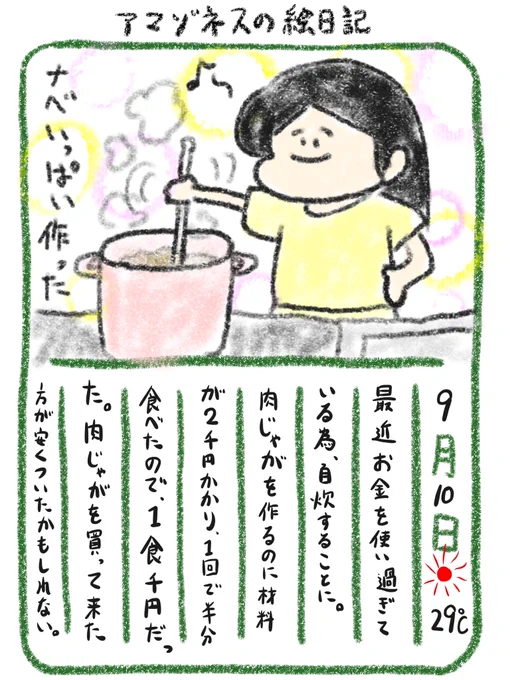 アマゾネスの絵日記
ナベいっぱい作った
9月10日
29℃
最近お金を使い過ぎて
いる為、自炊することに。
肉じゃがを作るのに材料
が2千円かかり、1回で半分
食べたので、1食千円だっ
た。肉じゃがを買って来た
方が安くついたかもしれない。